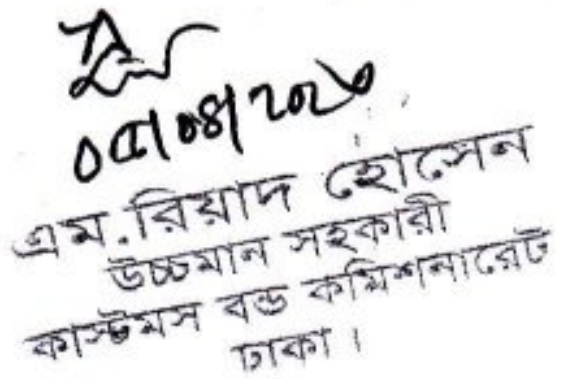 ০৫/০৪/২০২৩
এম. রিয়াদ হোসেন
উচ্চমান সহকারী
কাস্টমস বন্ড কমিশনারেট
ঢাকা।